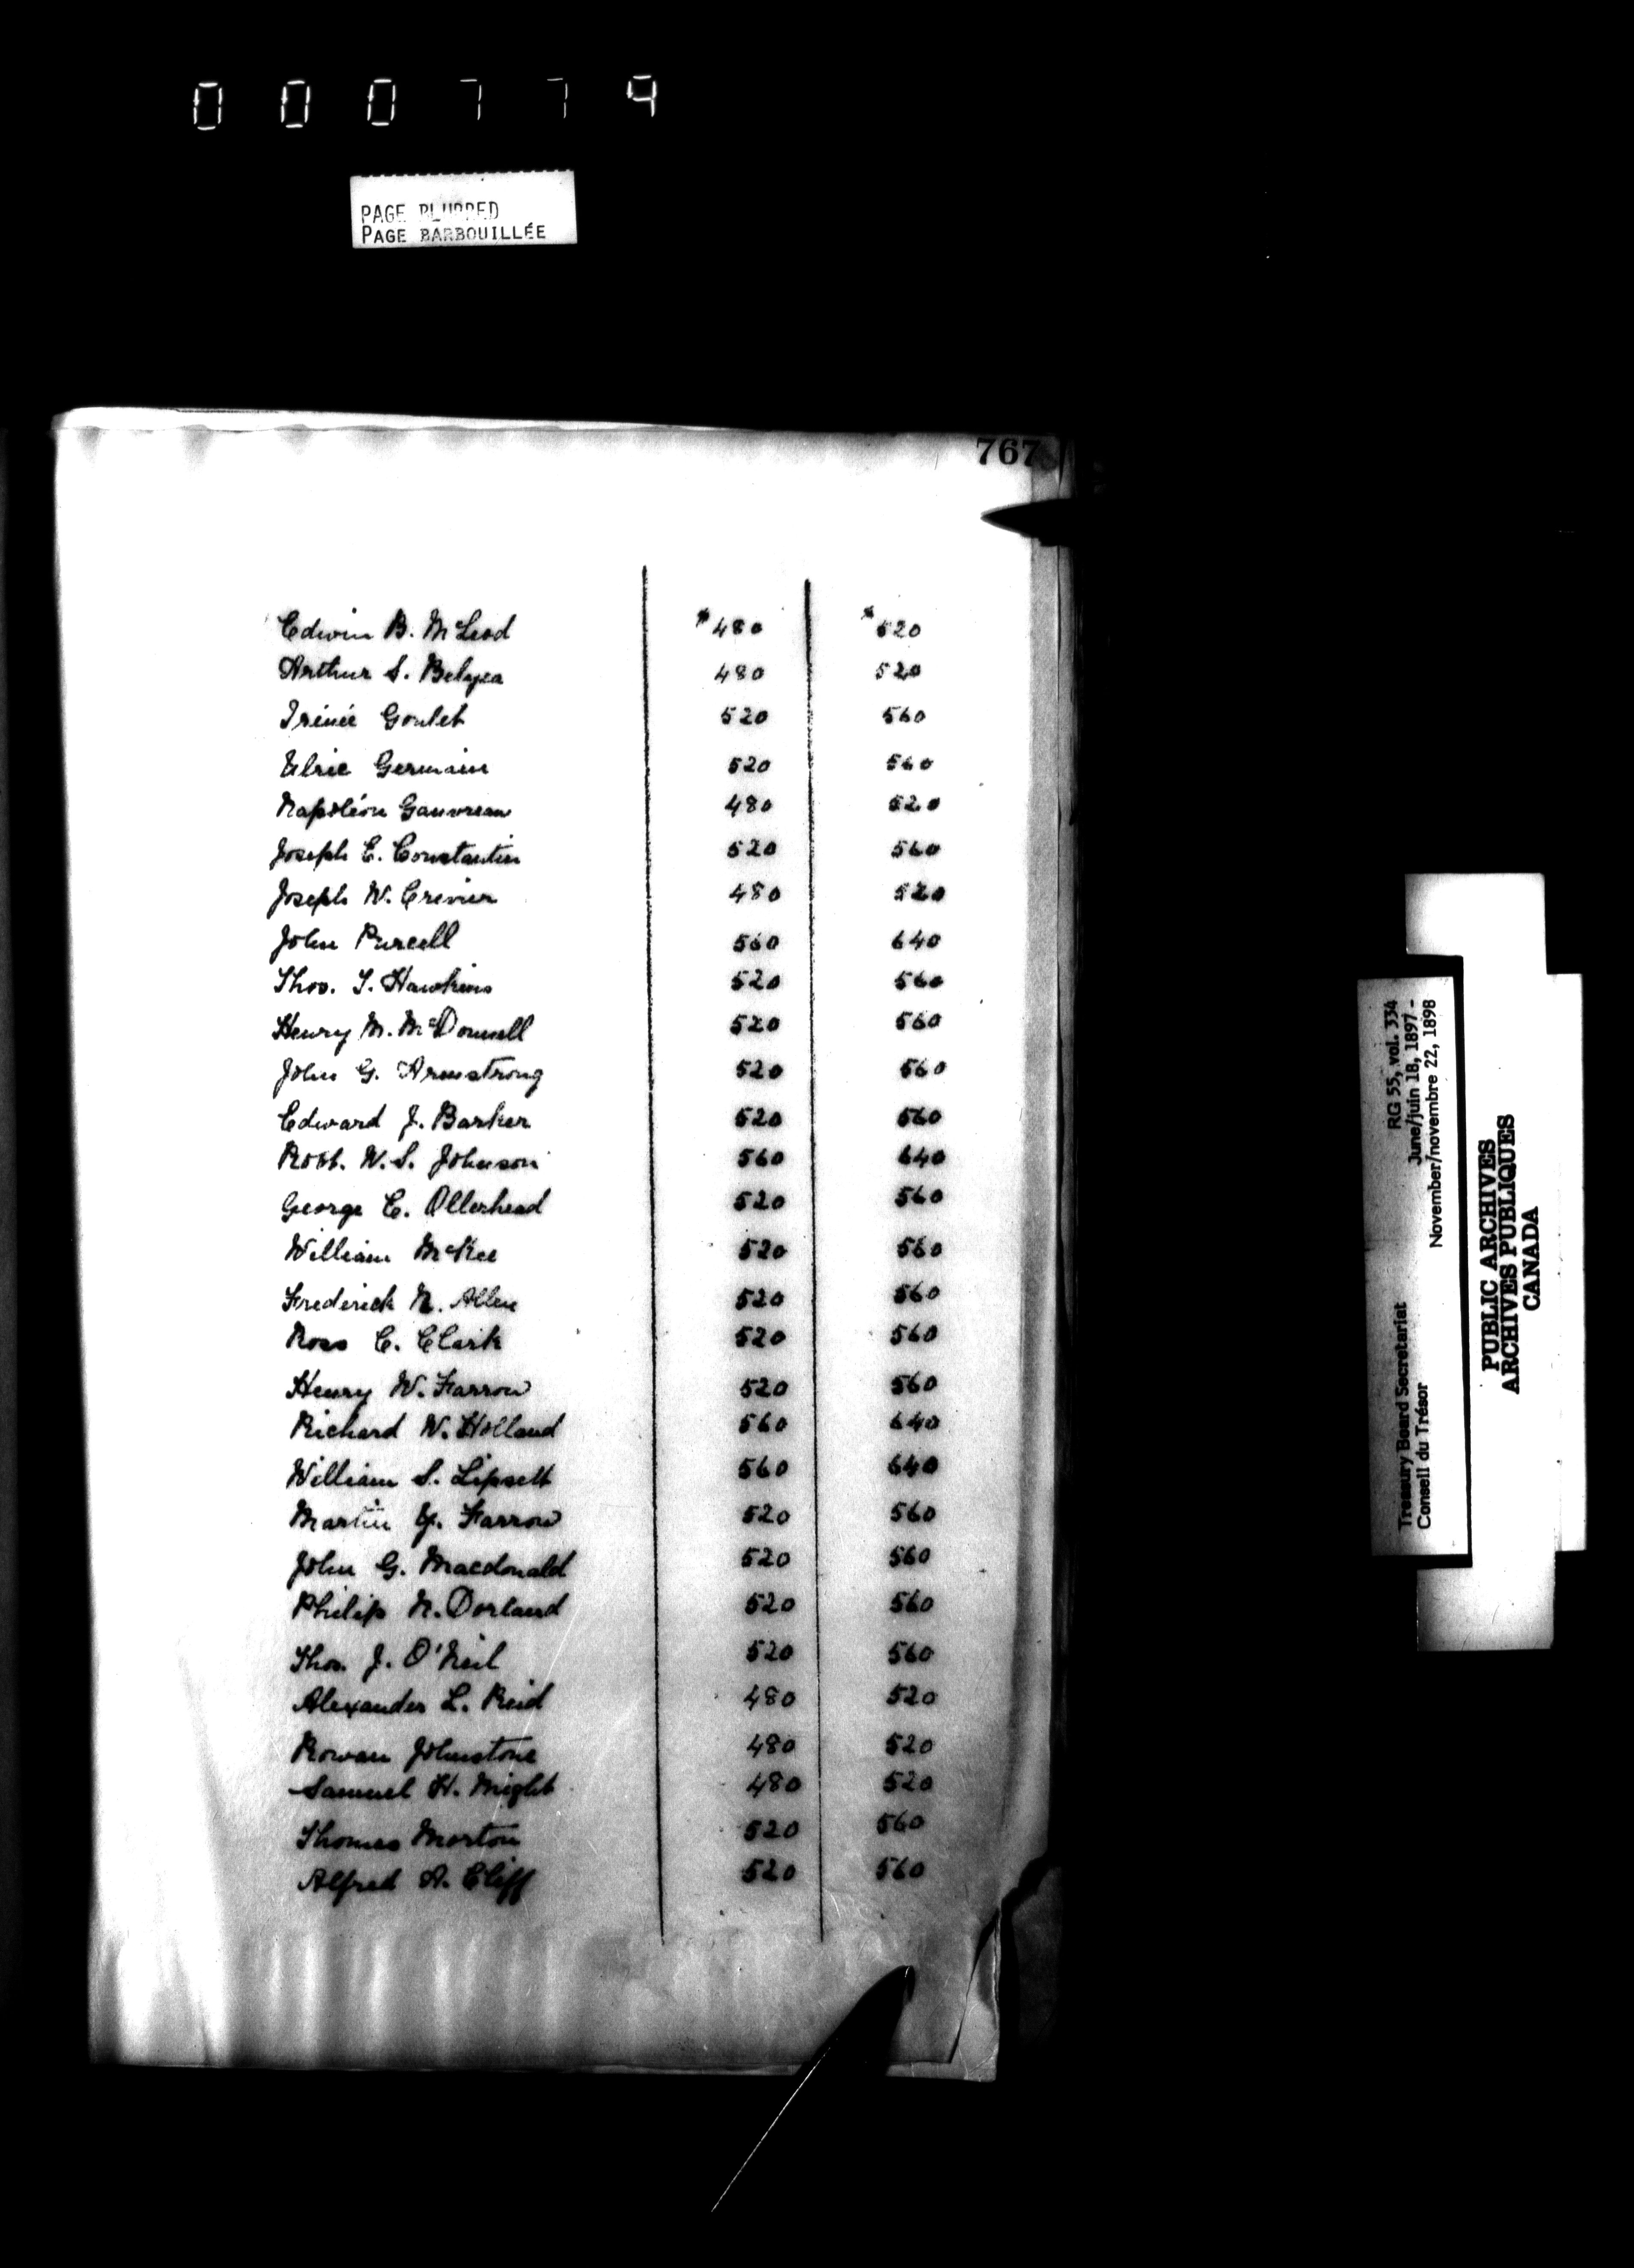 000779
PAGE BLURRED
PAGE BARBOUILLÉE
767
Edwin B. McLeod $480 $520
Arthur S. Belyea 480 520
Irénée Goulet 520 560
Ulric Germain 520 560
Napoléon Gauvreau 480 520
Joseph E. Constantin 520 560
Joseph W. Crevier 480 520
John Purcell 560 640
Thos. T. Hawkins 520 560
Henry M. McDonnell 520 560
John G. Armstrong 520 560
Edward J. Barker 520 560
Robt. W. S. Johnson 560 640
George E. Ollerhead 520 560
William McKee 520 560
Frederick N. Allen 520 560
Ross C. Clark 520 560
Henry W. Farrow 520 560
Richard W. Holland 560 640
William S. Lipsett 560 640
Martin Y. Farrow 520 560
John G. Macdonald 520 560
Philip N. Dorland 520 560
Thos. J. O'Neil 520 560
Alexander L. Reid 480 520
Rowan Johnstone 480 520
Samuel H. Might 480 520
Thomas Morton 520 560
Alfred A. Cliff 520 560
Treasury Board Secretariat RG 55, vol. 334
Conseil du Trésor June/juin 18, 1897 -
November/novembre 22, 1898
PUBLIC ARCHIVES
ARCHIVES PUBLIQUES
CANADA